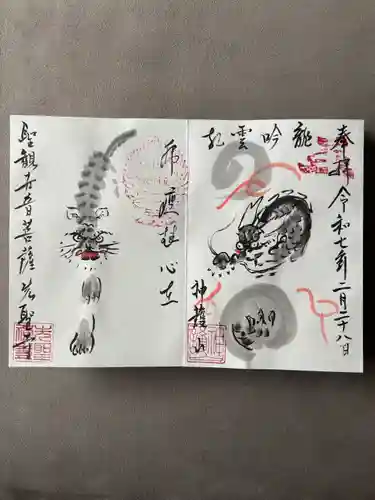 奉拝
令和七年二月二十八日
龍吟雲起
神護山
虎
心在
聖観世音菩薩
先聖寺